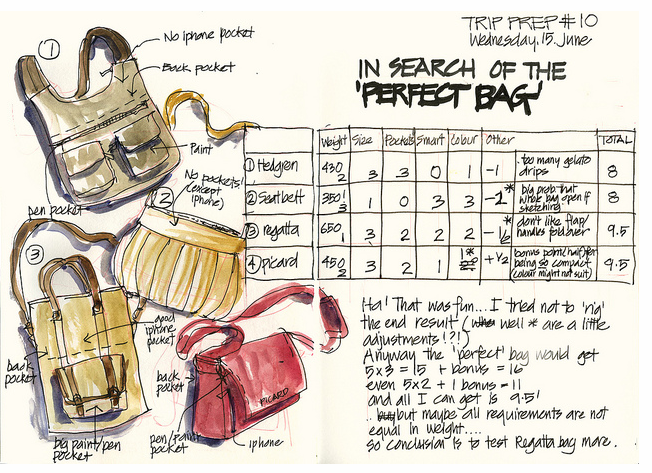 TRIP PREP #10
Wednesday, 15. June
IN SEARCH OF THE
'PERFECT BAG'
①
No iphone pocket
Back pocket
Paint
pen pocket
②
No pockets! (except iphone)
③
good iphone pocket
back pocket
big paint/pen pocket
back pocket
pen/paint pocket
iphone
PICARD
Weight Size Pockets Smart Colour Other TOTAL
① Hedgren 430 2 3 3 0 1 -1 too many gelato drips 8
② Seatbelt 350! 3 1 0 3 3 * big prob. that whole bag open if sketching 8
③ regatta 650 1 3 2 2 2 * don't like flap/ handles foldover 9.5
④ picard 450 2 3 2 1 1* +½ bonus point (half) for being so compact (colour might not suit) 9.5
Ha! That was fun... I tried not to 'rig'
the end result (well * are a little
adjustments!?!)
Anyway the 'perfect' bag would get
5x3 = 15 + bonus = 16
even 5x2 + 1 bonus = 11
and all I can get is 9.5!
.. but maybe all requirements are not
equal in weight....
so conclusion is to test Regatta bag more.